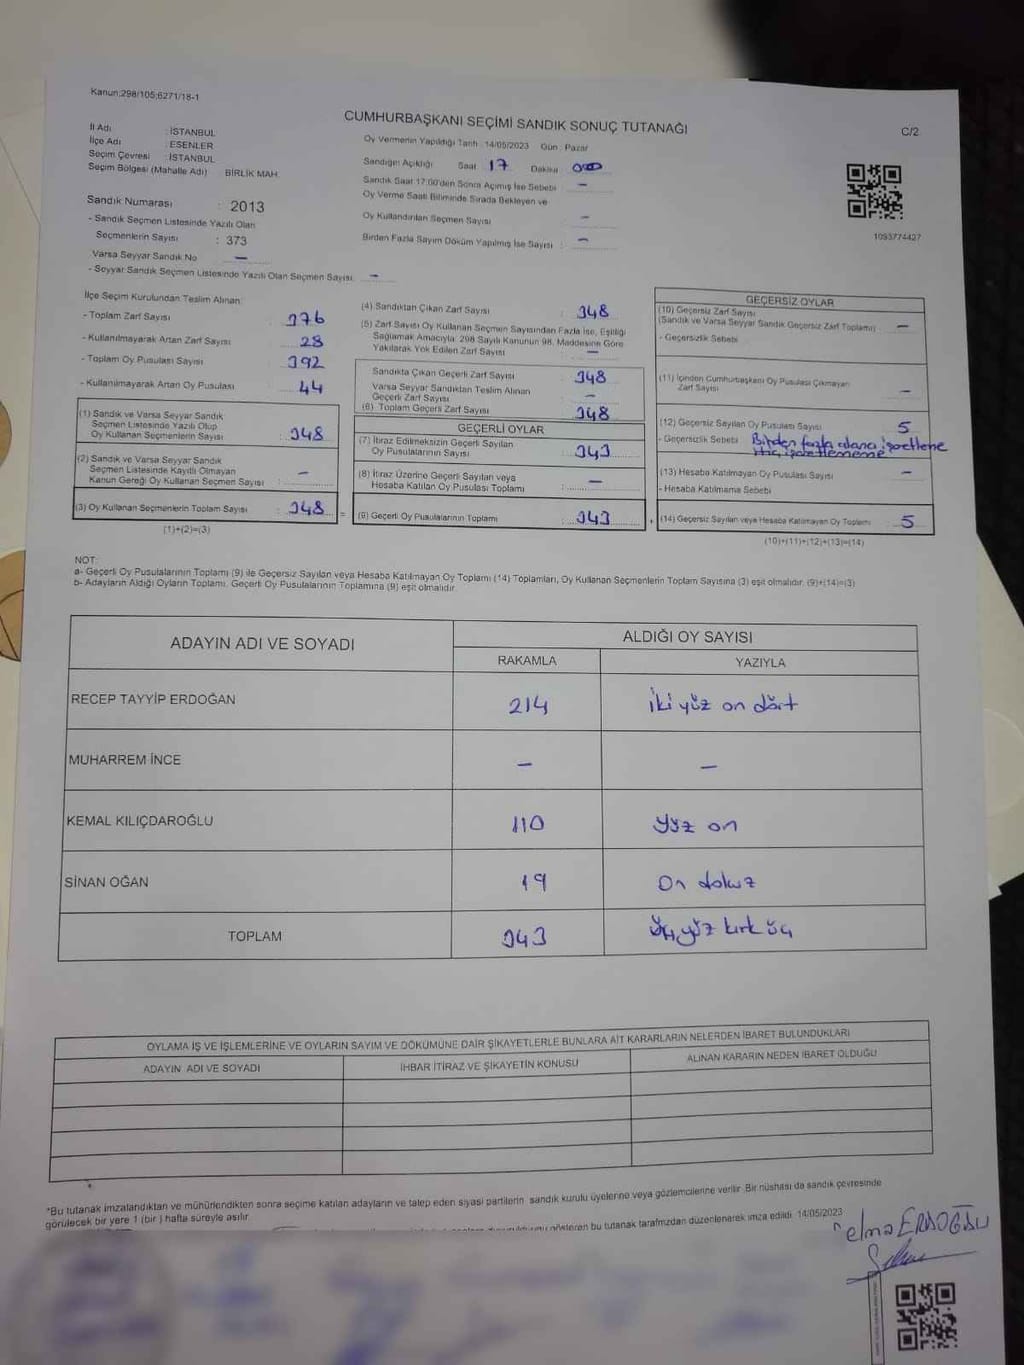 Kanun:298/105;6271/18-1
CUMHURBAŞKANI SEÇİMİ SANDIK SONUÇ TUTANAĞI
C/2
İl Adı : İSTANBUL
İlçe Adı : ESENLER
Seçim Çevresi : İSTANBUL
Seçim Bölgesi (Mahalle Adı) : BİRLİK MAH.
Sandık Numarası : 2013
- Sandık Seçmen Listesinde Yazılı Olan
Seçmenlerin Sayısı : 373
Varsa Seyyar Sandık No –
- Seyyar Sandık Seçmen Listesinde Yazılı Olan Seçmen Sayısı –
Oy Vermenin Yapıldığı Tarih : 14/05/2023 Gün : Pazar
Sandığın Açıldığı Saat 17 Dakika 00
Sandık Saat 17:00'den Sonra Açılmış İse Sebebi : –
Oy Verme Saati Bitiminde Sırada Bekleyen ve
Oy Kullandırılan Seçmen Sayısı : –
Birden Fazla Sayım Döküm Yapılmış İse Sayısı : –
1093774427
İlçe Seçim Kurulundan Teslim Alınan:
- Toplam Zarf Sayısı : 376
- Kullanılmayarak Artan Zarf Sayısı : 28
- Toplam Oy Pusulası Sayısı : 392
- Kullanılmayarak Artan Oy Pusulası : 44
(1) Sandık ve Varsa Seyyar Sandık
Seçmen Listesinde Yazılı Olup
Oy Kullanan Seçmenlerin Sayısı : 348
(2) Sandık ve Varsa Seyyar Sandık
Seçmen Listesinde Kayıtlı Olmayan
Kanun Gereği Oy Kullanan Seçmen Sayısı : –
(3) Oy Kullanan Seçmenlerin Toplam Sayısı : 348 =
(1)+(2)=(3)
(4) Sandıktan Çıkan Zarf Sayısı : 348
(5) Zarf Sayısı Oy Kullanan Seçmen Sayısından Fazla İse, Eşitliği
Sağlamak Amacıyla; 298 Sayılı Kanunun 98. Maddesine Göre
Yakılarak Yok Edilen Zarf Sayısı : –
Sandıkta Çıkan Geçerli Zarf Sayısı : 348
Varsa Seyyar Sandıktan Teslim Alınan
Geçerli Zarf Sayısı : –
(6) Toplam Geçerli Zarf Sayısı : 348
GEÇERLİ OYLAR
(7) İtiraz Edilmeksizin Geçerli Sayılan
Oy Pusulalarının Sayısı : 343
(8) İtiraz Üzerine Geçerli Sayılan veya
Hesaba Katılan Oy Pusulası Toplamı : –
(9) Geçerli Oy Pusulalarının Toplamı : 343 +
GEÇERSİZ OYLAR
(10) Geçersiz Zarf Sayısı
(Sandık ve Varsa Seyyar Sandık Geçersiz Zarf Toplamı) : –
- Geçersizlik Sebebi
(11) İçinden Cumhurbaşkanı Oy Pusulası Çıkmayan
Zarf Sayısı : –
(12) Geçersiz Sayılan Oy Pusulası Sayısı : 5
- Geçersizlik Sebebi Birden fazla alana işaretleme
Hiç işaretlememe
(13) Hesaba Katılmayan Oy Pusulası Sayısı : –
- Hesaba Katılmama Sebebi
(14) Geçersiz Sayılan veya Hesaba Katılmayan Oy Toplamı : 5
(10)+(11)+(12)+(13)=(14)
NOT:
a- Geçerli Oy Pusulalarının Toplamı (9) ile Geçersiz Sayılan veya Hesaba Katılmayan Oy Toplamı (14) Toplamları, Oy Kullanan Seçmenlerin Toplam Sayısına (3) eşit olmalıdır. (9)+(14)=(3)
b- Adayların Aldığı Oyların Toplamı, Geçerli Oy Pusulalarının Toplamına (9) eşit olmalıdır.
ADAYIN ADI VE SOYADI
ALDIĞI OY SAYISI
RAKAMLA YAZIYLA
RECEP TAYYİP ERDOĞAN 214 İki yüz on dört
MUHARREM İNCE – –
KEMAL KILIÇDAROĞLU 110 yüz on
SİNAN OĞAN 19 On dokuz
TOPLAM 343 Üç yüz kırk üç
OYLAMA İŞ VE İŞLEMLERİNE VE OYLARIN SAYIM VE DÖKÜMÜNE DAİR ŞİKAYETLERLE BUNLARA AİT KARARLARIN NELERDEN İBARET BULUNDUKLARI
ADAYIN ADI VE SOYADI İHBAR İTİRAZ VE ŞİKAYETİN KONUSU ALINAN KARARIN NEDEN İBARET OLDUĞU
*Bu tutanak imzalandıktan ve mühürlendikten sonra seçime katılan adayların ve talep eden siyasi partilerin sandık kurulu üyelerine veya gözlemcilerine verilir. Bir nüshası da sandık çevresinde
görülecek bir yere 1 (bir) hafta süreyle asılır.
gösteren bu tutanak tarafımızdan düzenlenerek imza edildi. 14/05/2023
elma ERDOĞDU